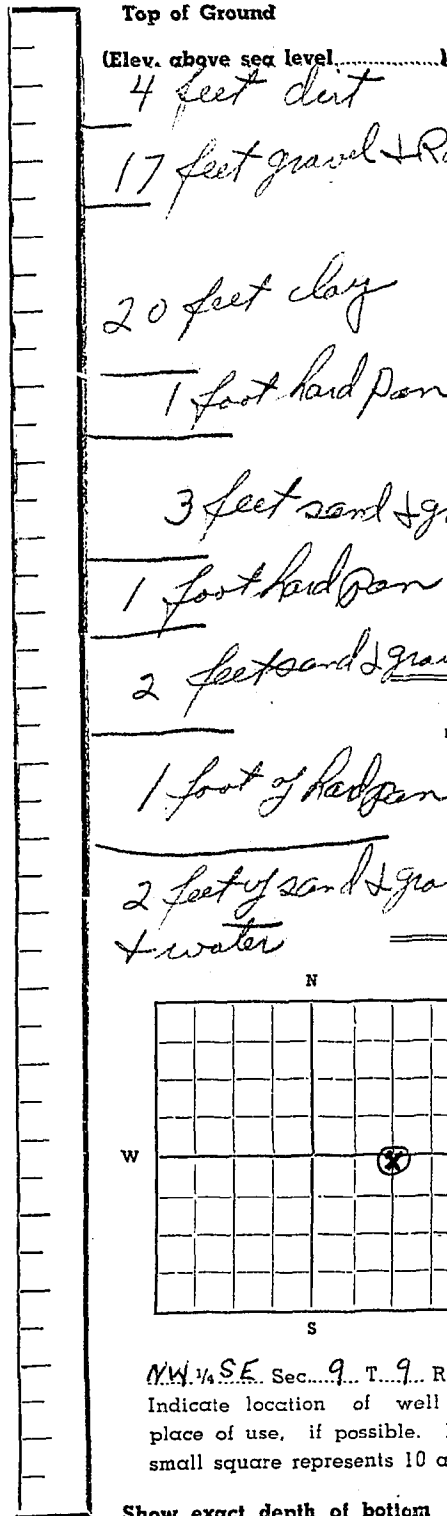 Top of Ground
(Elev. above sea level...............)
4 feet dirt
17 feet gravel &
20 feet clay
1 foot hard pan
3 feet sand &
1 foot hard pan
2 feet sand &
1 foot of hardpan
2 feet of sand &
& water
N
W
S
NW 1/4 SE Sec. 9 T. 9 R
Indicate location of well
place of use, if possible.
small square represents 10
Show exact depth of bottom